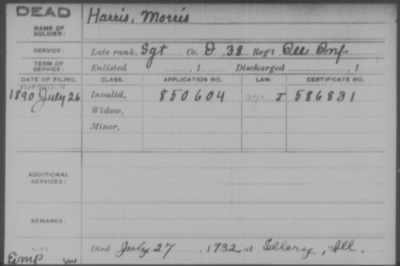 DEAD
NAME OF SOLDIER: Harris, Morris
SERVICE: Late rank, Sgt Co. D, 38 Reg't Ill Inf
TERM OF SERVICE: Enlisted , 1 Discharged , 1
DATE OF FILING. CLASS. APPLICATION NO. LAW. CERTIFICATE NO.
1890 July 26 Invalid, 850604 J 586831
Widow,
Minor,
ADDITIONAL SERVICES:
REMARKS:
Died July 27, 1932, at Ellery, Ill.